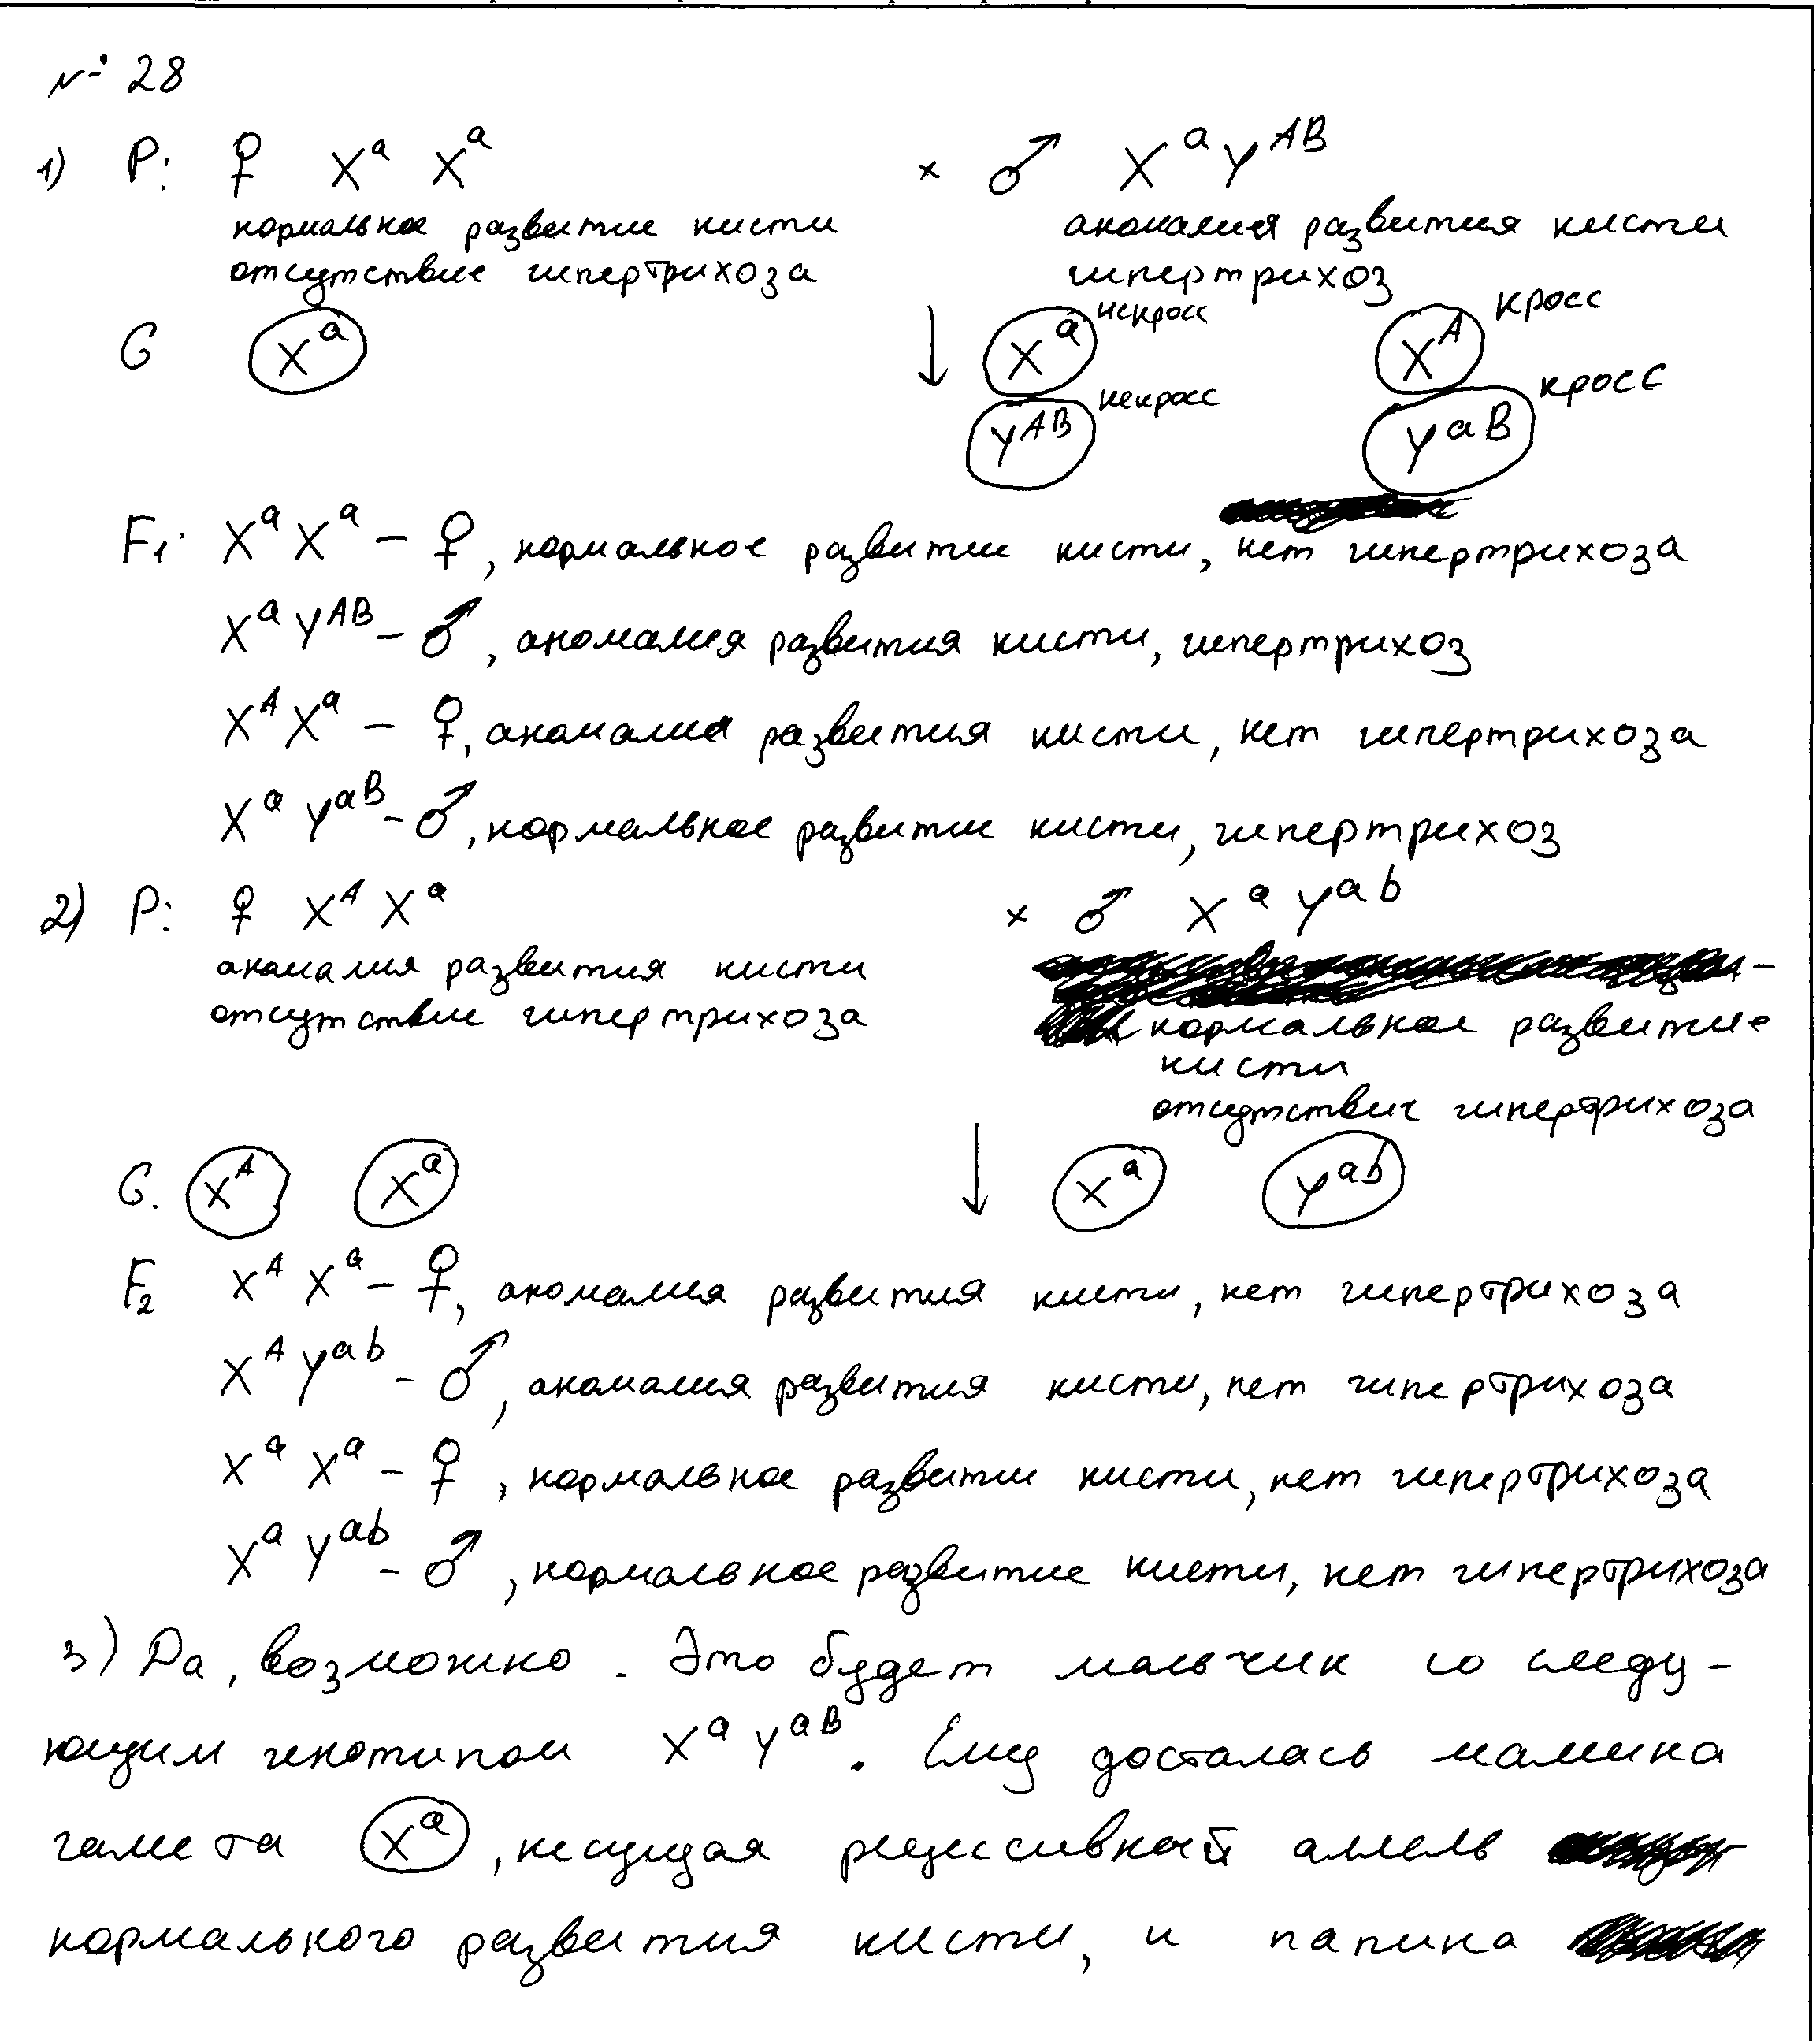 № 28
1) P: ♀ Xᵃ Xᵃ × ♂ XᵃYᴬᴮ
нормальное развитие кисти аномалия развития кисти
отсутствие гипертрихоза гипертрихоз
G Xᵃ ↓ Xᵃ некросс Xᴬ кросс
Yᴬᴮ некросс Yᵃᴮ кросс
F₁: XᵃXᵃ – ♀, нормальное развитие кисти, нет гипертрихоза
XᵃYᴬᴮ – ♂, аномалия развития кисти, гипертрихоз
XᴬXᵃ – ♀, аномалия развития кисти, нет гипертрихоза
XᵃYᵃᴮ – ♂, нормальное развитие кисти, гипертрихоз
2) P: ♀ XᴬXᵃ × ♂ XᵃYᵃᵇ
аномалия развития кисти
отсутствие гипертрихоза нормальное развитие
кисти
отсутствие гипертрихоза
G. Xᴬ Xᵃ ↓ Xᵃ Yᵃᵇ
F₂ XᴬXᵃ – ♀, аномалия развития кисти, нет гипертрихоза
XᴬYᵃᵇ – ♂, аномалия развития кисти, нет гипертрихоза
XᵃXᵃ – ♀, нормальное развитие кисти, нет гипертрихоза
XᵃYᵃᵇ – ♂, нормальное развитие кисти, нет гипертрихоза
3) Да, возможно. Это будет мальчик со следу-
ющим генотипом XᵃYᵃᴮ. Ему досталась мамина
гамета Xᵃ, несущая рецессивный аллель
нормального развития кисти, и папина